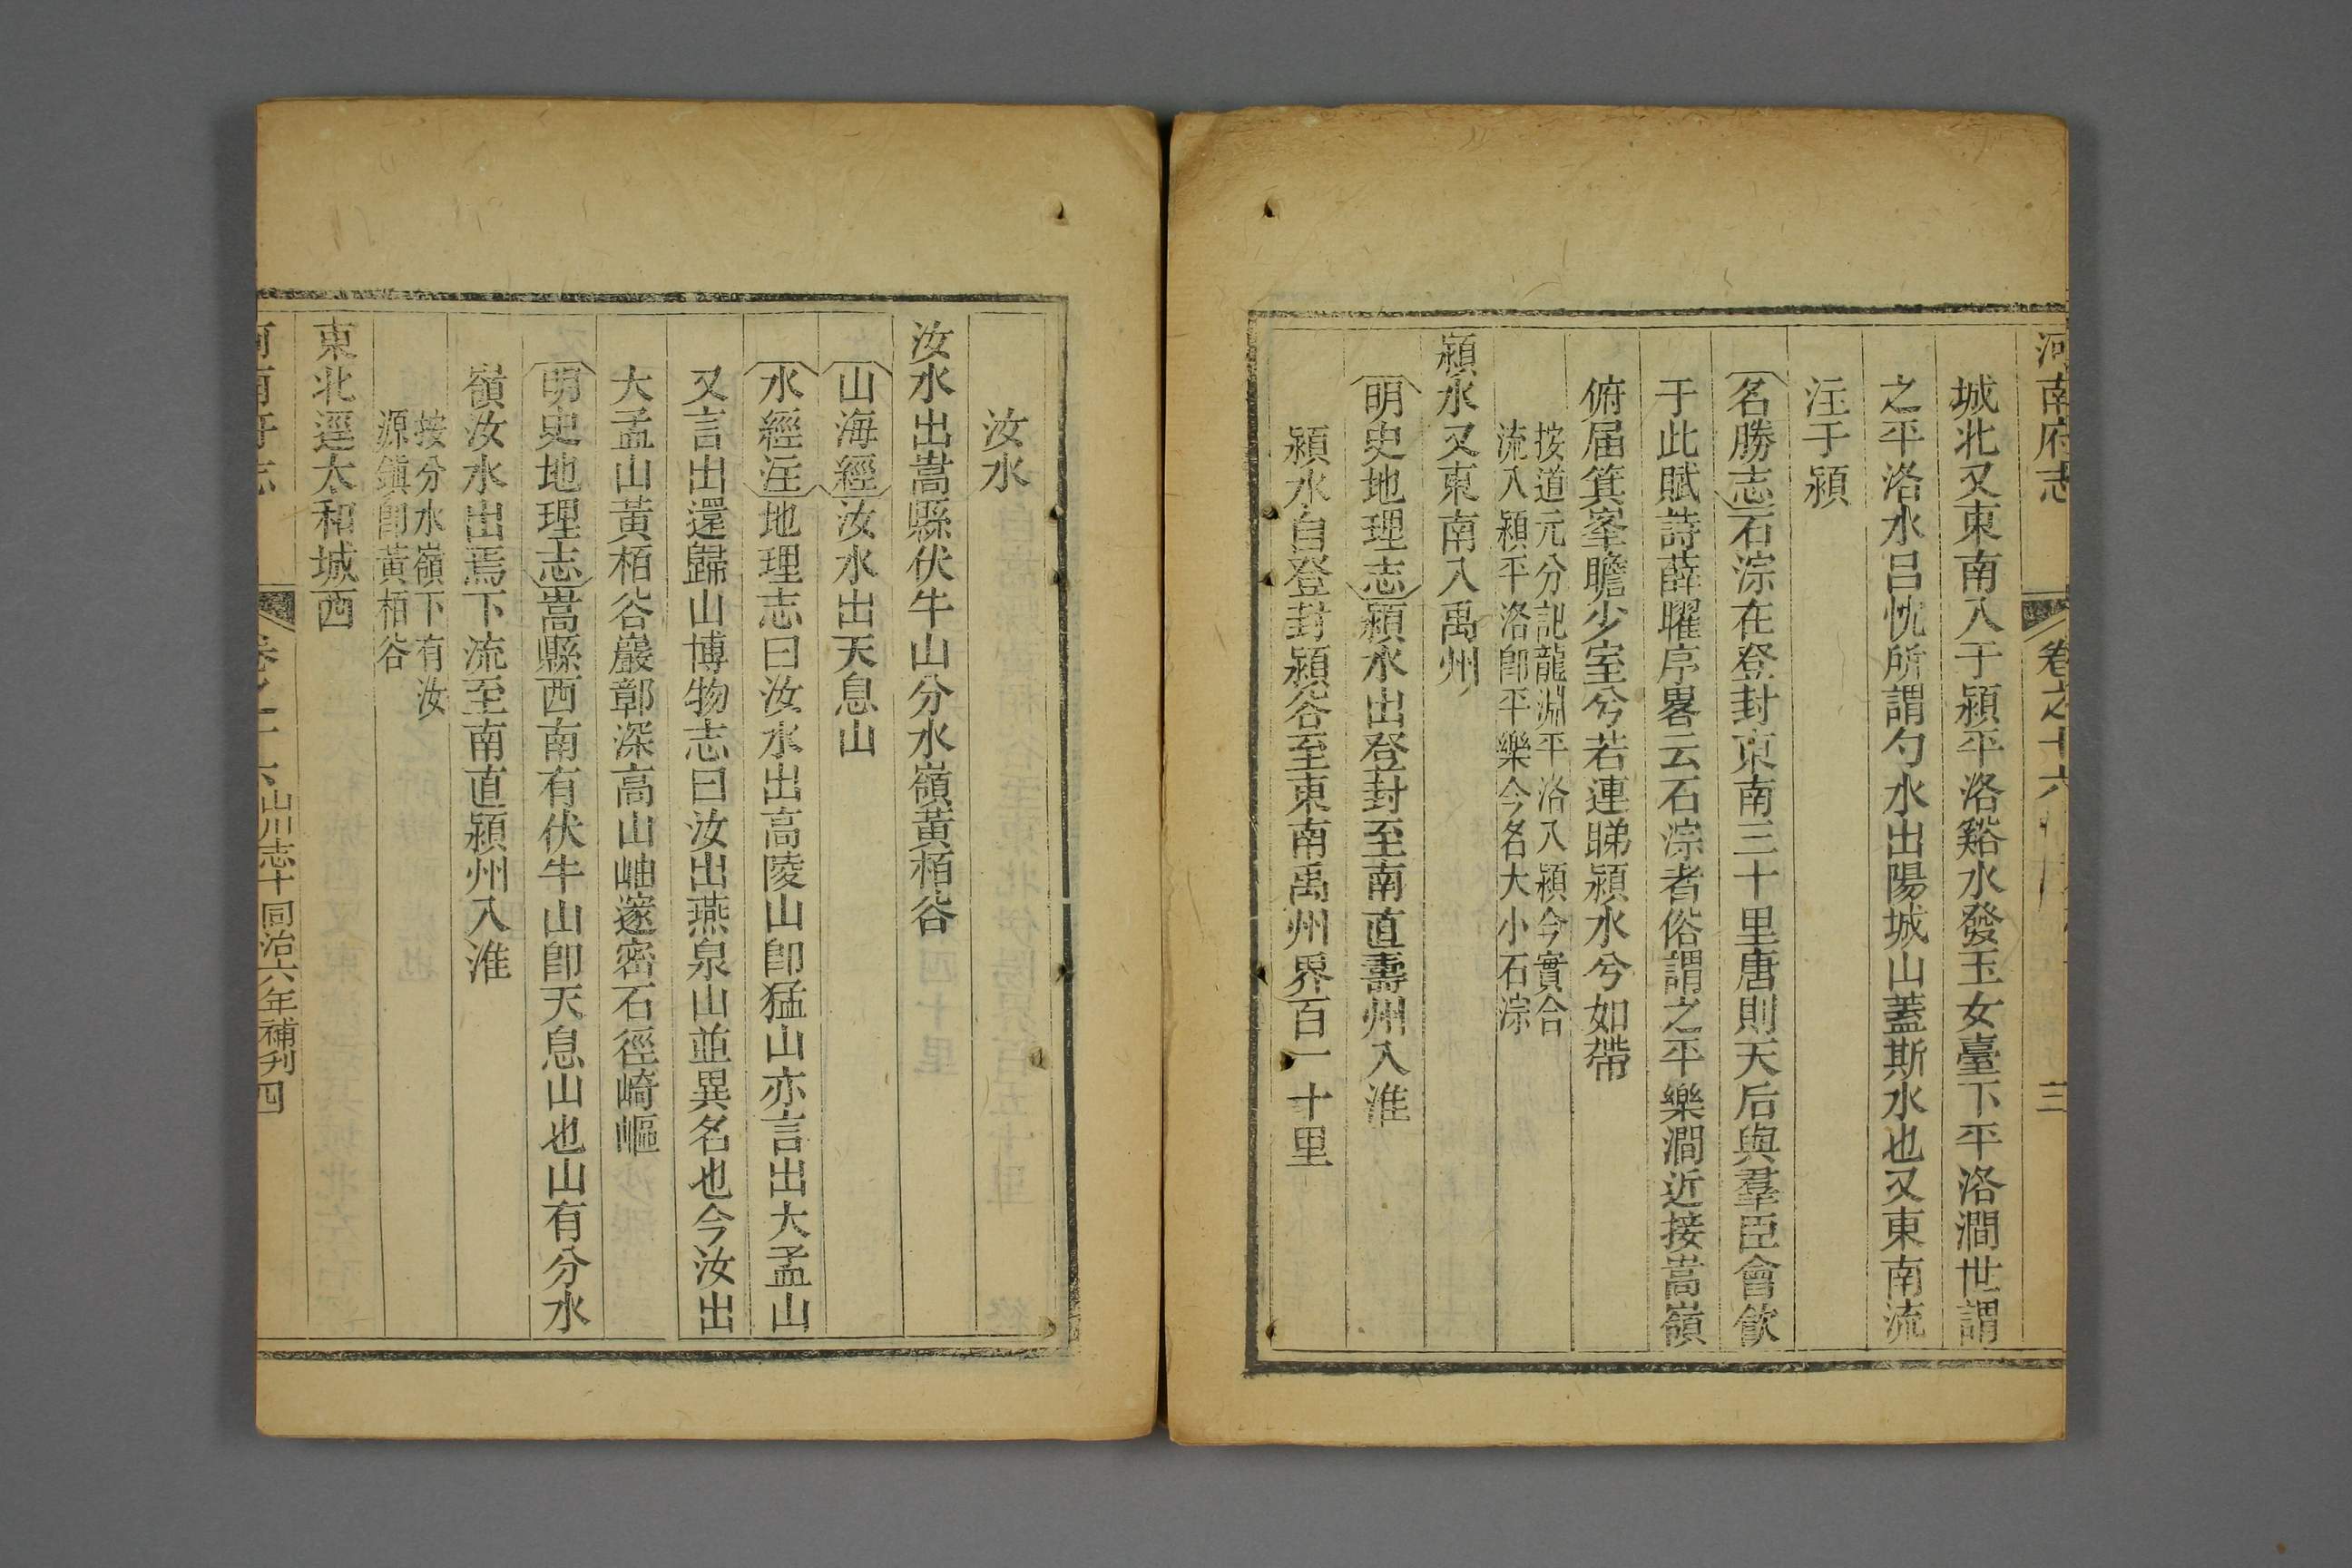 河南府志 卷之十六 三
城北又東南入于潁平洛谿水發玉女臺下平洛澗世謂
之平洛水呂忱所謂勺水出陽城山蓋斯水也又東南流
注于潁
名勝志石淙在登封東南三十里唐則天后與羣臣會飲
于此賦詩薛曜序畧云石淙者俗謂之平樂澗近接嵩嶺
俯届箕峯瞻少室兮若連睇潁水兮如帶
按道元分記龍淵平洛入潁今實合
流入潁平洛卽平樂今名大小石淙
潁水又東南入禹州
明史地理志潁水出登封至南直壽州入淮
潁水自登封潁谷至東南禹州界百一十里
汝水
汝水出嵩縣伏牛山分水嶺黃栢谷
山海經汝水出天息山
水經注地理志曰汝水出高陵山卽猛山亦言出大孟山
又言出還歸山博物志曰汝出燕泉山並異名也今汝出
大孟山黃栢谷巖鄣深高山岫邃密石徑崎嶇
明史地理志嵩縣西南有伏牛山卽天息山也山有分水
嶺汝水出焉下流至南直潁州入淮
按分水嶺下有汝
源鎮卽黃栢谷
東北逕太和城西
河南府志 卷之十六 山川志十同治六年補刋 四